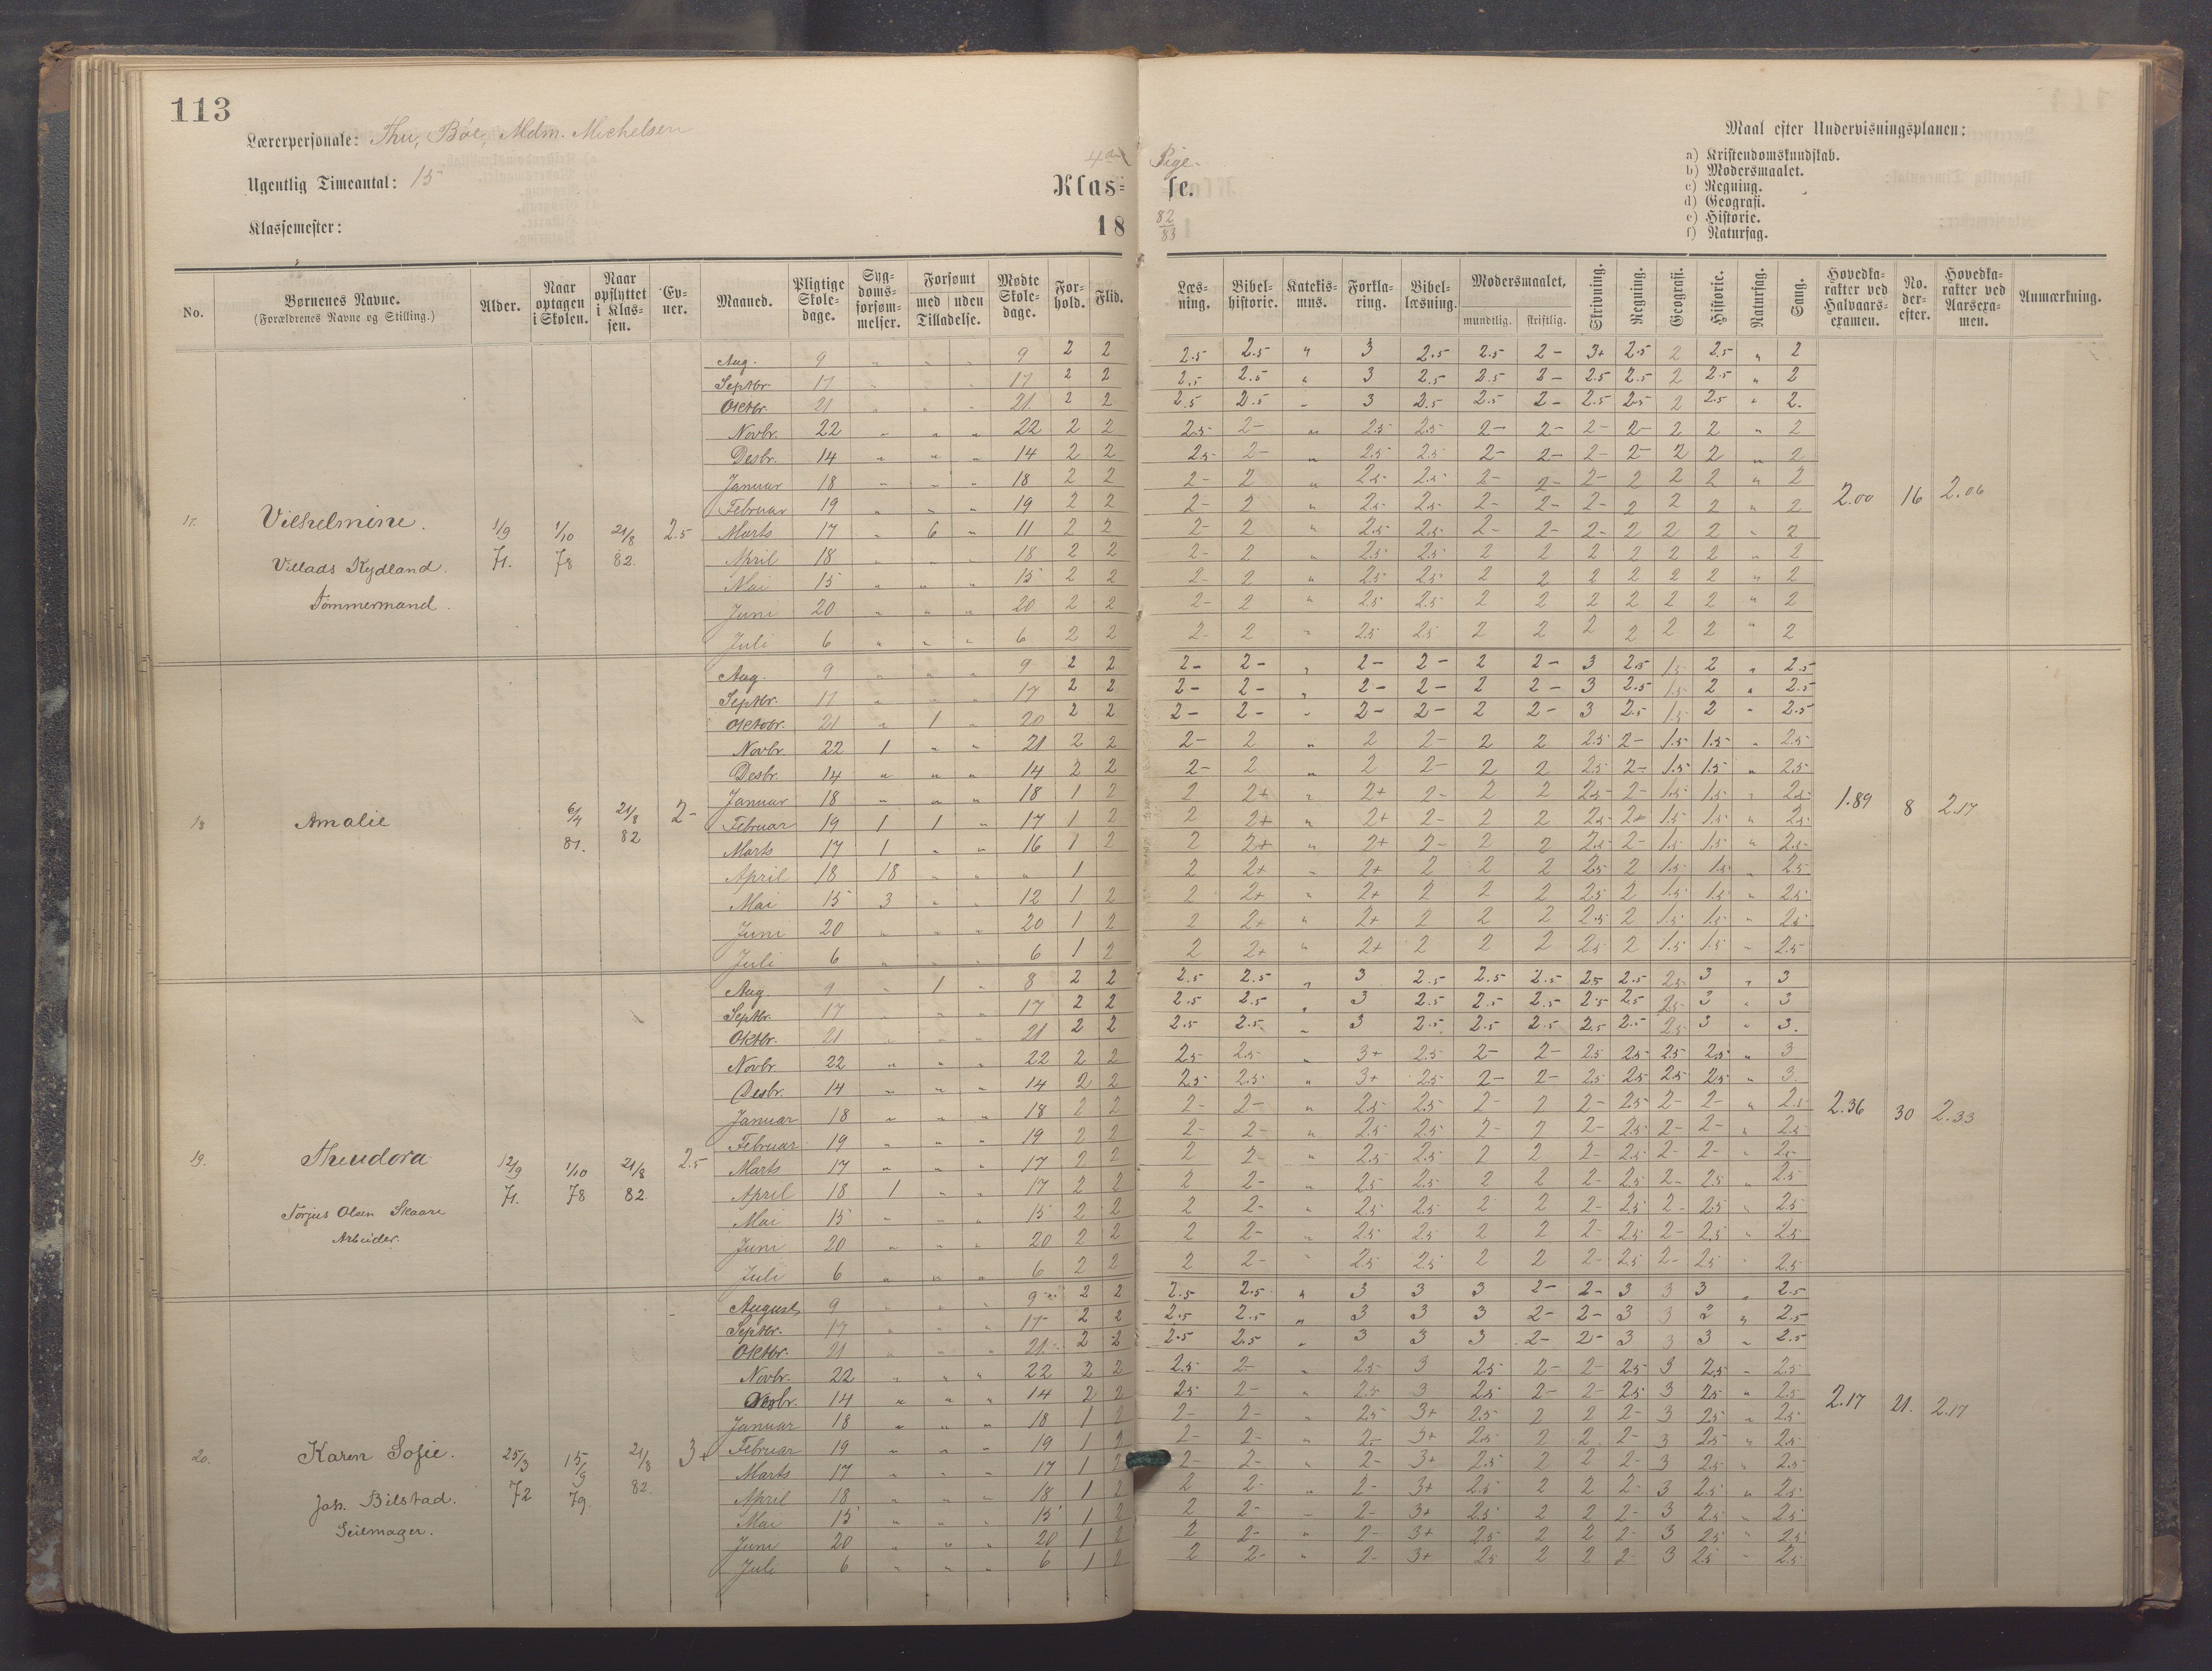 113
Lærerpersonale: Thu, Böe, Mdm. Michelsen
Ugentlig Timeantal: 15
Klassemester:
4de Pige-
Klas= se.
18 82/83
Maal efter Undervisningsplanen:
a) Kristendomskundskab.
b) Modersmaalet.
c) Regning.
d) Geografi.
e) Historie.
f) Naturfag.
No. | Børnenes Navne. (Forældrenes Navne og Stilling.) | Alder. | Naar optagen i Skolen. | Naar opflyttet i Klassen. | Evner. | Maaned. | Pligtige Skoledage. | Sygdomsforsømmelser. | Forsømt med Tilladelse. | uden Tilladelse. | Mødte Skoledage. | Forhold. | Flid. | Læsning. | Bibelhistorie. | Katekismus. | Forklaring. | Bibellæsning. | Modersmaalet, mundtlig. | skriftlig. | Skrivning. | Regning. | Geografi. | Historie. | Naturfag. | Sang. | Hovedkarakter ved Halvaarsexamen. | No. derefter. | Hovedkarakter ved Aarsexamen. | Anmærkning.
17. Vilhelmine. Villads Rydland. Tömmermand. 1/9 71. 1/10 78 21/8 82. 2.5
Aug. 9 " " " 9 2 2 2.5 2.5 " 3 2.5 2.5 2- 3+ 2.5 2 2.5 " 2
Septbr 17 " " " 17 2 2 2.5 2.5 " 3 2.5 2.5 2- 2.5 2.5 2 2.5 " 2
Oktbr. 21 " " " 21 2 2 2.5 2.5 " 3 2.5 2.5 2- 2.5 2.5 2 2.5 " 2.
Novbr. 22 " " " 22 2 2 2.5 2- " 2.5 2.5 2- 2- 2- 2- 2 2 " 2
Desbr. 14 " " " 14 2 2 2.5 2- " 2.5 2.5 2- 2- 2- 2- 2 2 " 2
Januar 18 " " " 18 2 2 2- 2 " 2.5 2.5 2- 2- 2- 2 2 2 " 2
Februar 19 " " " 19 2 2 2- 2 " 2.5 2.5 2- 2- 2- 2 2 2 " 2
Marts 17 " 6 " 11 2 2 2- 2 " 2.5 2.5 2- 2- 2- 2 2 2 " 2
April 18 " " " 18 2 2 2- 2 " 2.5 2.5 2 2 2 2 2 2 " 2
Mai 15 " " " 15 2 2 2- 2 " 2.5 2.5 2 2 2 2 2 2 " 2
Juni 20 " " " 20 2 2 2- 2 " 2.5 2.5 2 2 2 2 2 2 " 2
Juli 6 " " " 6 2 2 2- 2 " 2.5 2.5 2 2 2 2 2 2 " 2
2.00 16 2.06
18 Amalie 6/4 81. 21/8 82 2-
Aug. 9 " " " 9 2 2 2- 2- " 2- 2- 2 2- 3 2.5 1.5 2 " 2.5
Septbr. 17 " " " 17 2 2 2- 2- " 2- 2- 2 2- 3 2.5 1.5 2 " 2.5
Oktobr. 21 " 1 " 20 2 2 2- 2- " 2- 2- 2 2- 3 2.5 1.5 2 " 2.5
Novbr 22 1 " " 21 2 2 2- 2 " 2 2- 2 2 2.5 2- 1.5 1.5 " 2.5
Desbr. 14 " " " 14 2 2 2- 2 " 2 2- 2 2 2.5 2- 1.5 1.5 " 2.5
Januar 18 " " " 18 1 2 2 2+ " 2+ 2- 2 2 2.5 2- 1.5 1.5 " 2.5
Februar 19 1 1 " 17 1 2 2 2+ " 2+ 2- 2 2 2.5 2- 1.5 1.5 " 2.5
Marts 17 1 " " 16 1 2 2 2+ " 2+ 2- 2 2 2.5 2- 1.5 1.5 " 2.5
April 18 18 " " " 1 2 2+ " 2+ 2 2 2 2.5 2 1.5 1.5 " 2.5
Mai 15 3 " " 12 1 2 2 2+ " 2+ 2 2 2 2.5 2 1.5 1.5 " 2.5
Juni 20 " " " 20 1 2 2 2+ " 2+ 2 2 2 2.5 2 1.5 1.5 " 2.5
Juli 6 " " " 6 1 2 2 2+ " 2+ 2 2 2 2.5 2 1.5 1.5 " 2.5
1.89 8 2.17
19. Theodora Torjus Olsen Skaare Arbeider. 12/9 71. 1/10 78 21/8 82. 2.5
Aug. 9 " 1 " 8 2 2 2.5 2.5 " 3 2.5 2.5 2.5 2.5 2.5 2.5 3 " 3
Septbr. 17 " " " 17 2 2 2.5 2.5 " 3 2.5 2.5 2.5 2.5 2.5 2.5 3 " 3
Oktbr. 21 " " " 21 2 2 2.5 2.5 " 3 2.5 2.5 2.5 2.5 2.5 2.5 3 " 3.
Novbr 22 " " " 22 2 2 2.5 2.5 " 3+ 2.5 2- 2- 2.5 2.5 2.5 2.5 " 3
Desbr. 14 " " " 14 2 2 2.5 2.5 " 3+ 2.5 2- 2- 2.5 2.5 2.5 2.5 " 3.
Januar 18 " " " 18 2 2 2- 2- " 2.5 2.5 2- 2 2- 2.5 2- 2- " 2.5
Februar 19 " " " 19 2 2 2- 2- " 2.5 2.5 2- 2 2- 2.5 2- 2- " 2.5
Marts 17 " " " 17 2 2 2 2- " 2.5 2.5 2 2 2- 2.5 2- 2- " 2.5
April 18 1 " " 17 2 2 2 2- " 2.5 2.5 2 2 2- 2.5 2- 2.5 " 2.5
Mai 15 " " " 15 2 2 2 2- " 2.5 2.5 2 2 2- 2.5 2- 2.5 " 2.5
Juni 20 " " " 20 2 2 2 2- " 2.5 2.5 2 2 2- 2.5 2- 2.5 " 2.5
Juli 6 " " " 6 2 2 2 2- " 2.5 2.5 2 2 2- 2.5 2- 2.5 " 2.5
2.36 30 2.33
20. Karen Sofie. Joh. Bilstad. Seilmager. 25/3 72 15/9 79. 21/8 82. 3+
August 9 " " " 9 2 2 2.5 2.5 " 3 3 3 2- 2- 3 3 3 " 2.5
Septbr. 17 " " " 17 2 2 2.5 2.5 " 3 3 3 2- 2- 3 3 3 " 2.5
Oktbr. 21 " " " 21 2 2 2.5 2.5 " 3 3 3 2- 2- 3 3 3 " 2.5
Novbr. 22 " " " 22 2 2 2.5 2- " 2.5 3 2.5 2- 2- 2.5 3 2.5 " 2.5
Desbr. 14 " " " 14 2 2 2.5 2- " 2.5 3 2.5 2- 2- 2.5 3 2.5 " 2.5
Januar 18 " " " 18 1 2 2- 2- " 2.5 3+ 2.5 2 2 2- 3 2.5 " 2.5
Februar 19 " " " 19 1 2 2- 2- " 2- 3+ 2.5 2 2 2- 3 2.5 " 2.5
Marts 17 " " " 17 1 2 2- 2- " 2- 3+ 2.5 2 2 2- 3 2.5 " 2.5
April 18 " " " 18 1 2 2 2- " 2- 3+ 2.5 2 2 2- 3 2.5 " 2.5
Mai 15 " " " 15 1 2 2 2- " 2- 3+ 2.5 2 2 2- 3 2.5 " 2.5
Juni 20 " " " 20 1 2 2 2- " 2- 3+ 2.5 2 2 2- 3 2.5 " 2.5
Juli 6 " " " 6 1 2 2 2- " 2- 3+ 2.5 2 2 2- 3 2.5 " 2.5
2.17 21. 2.17